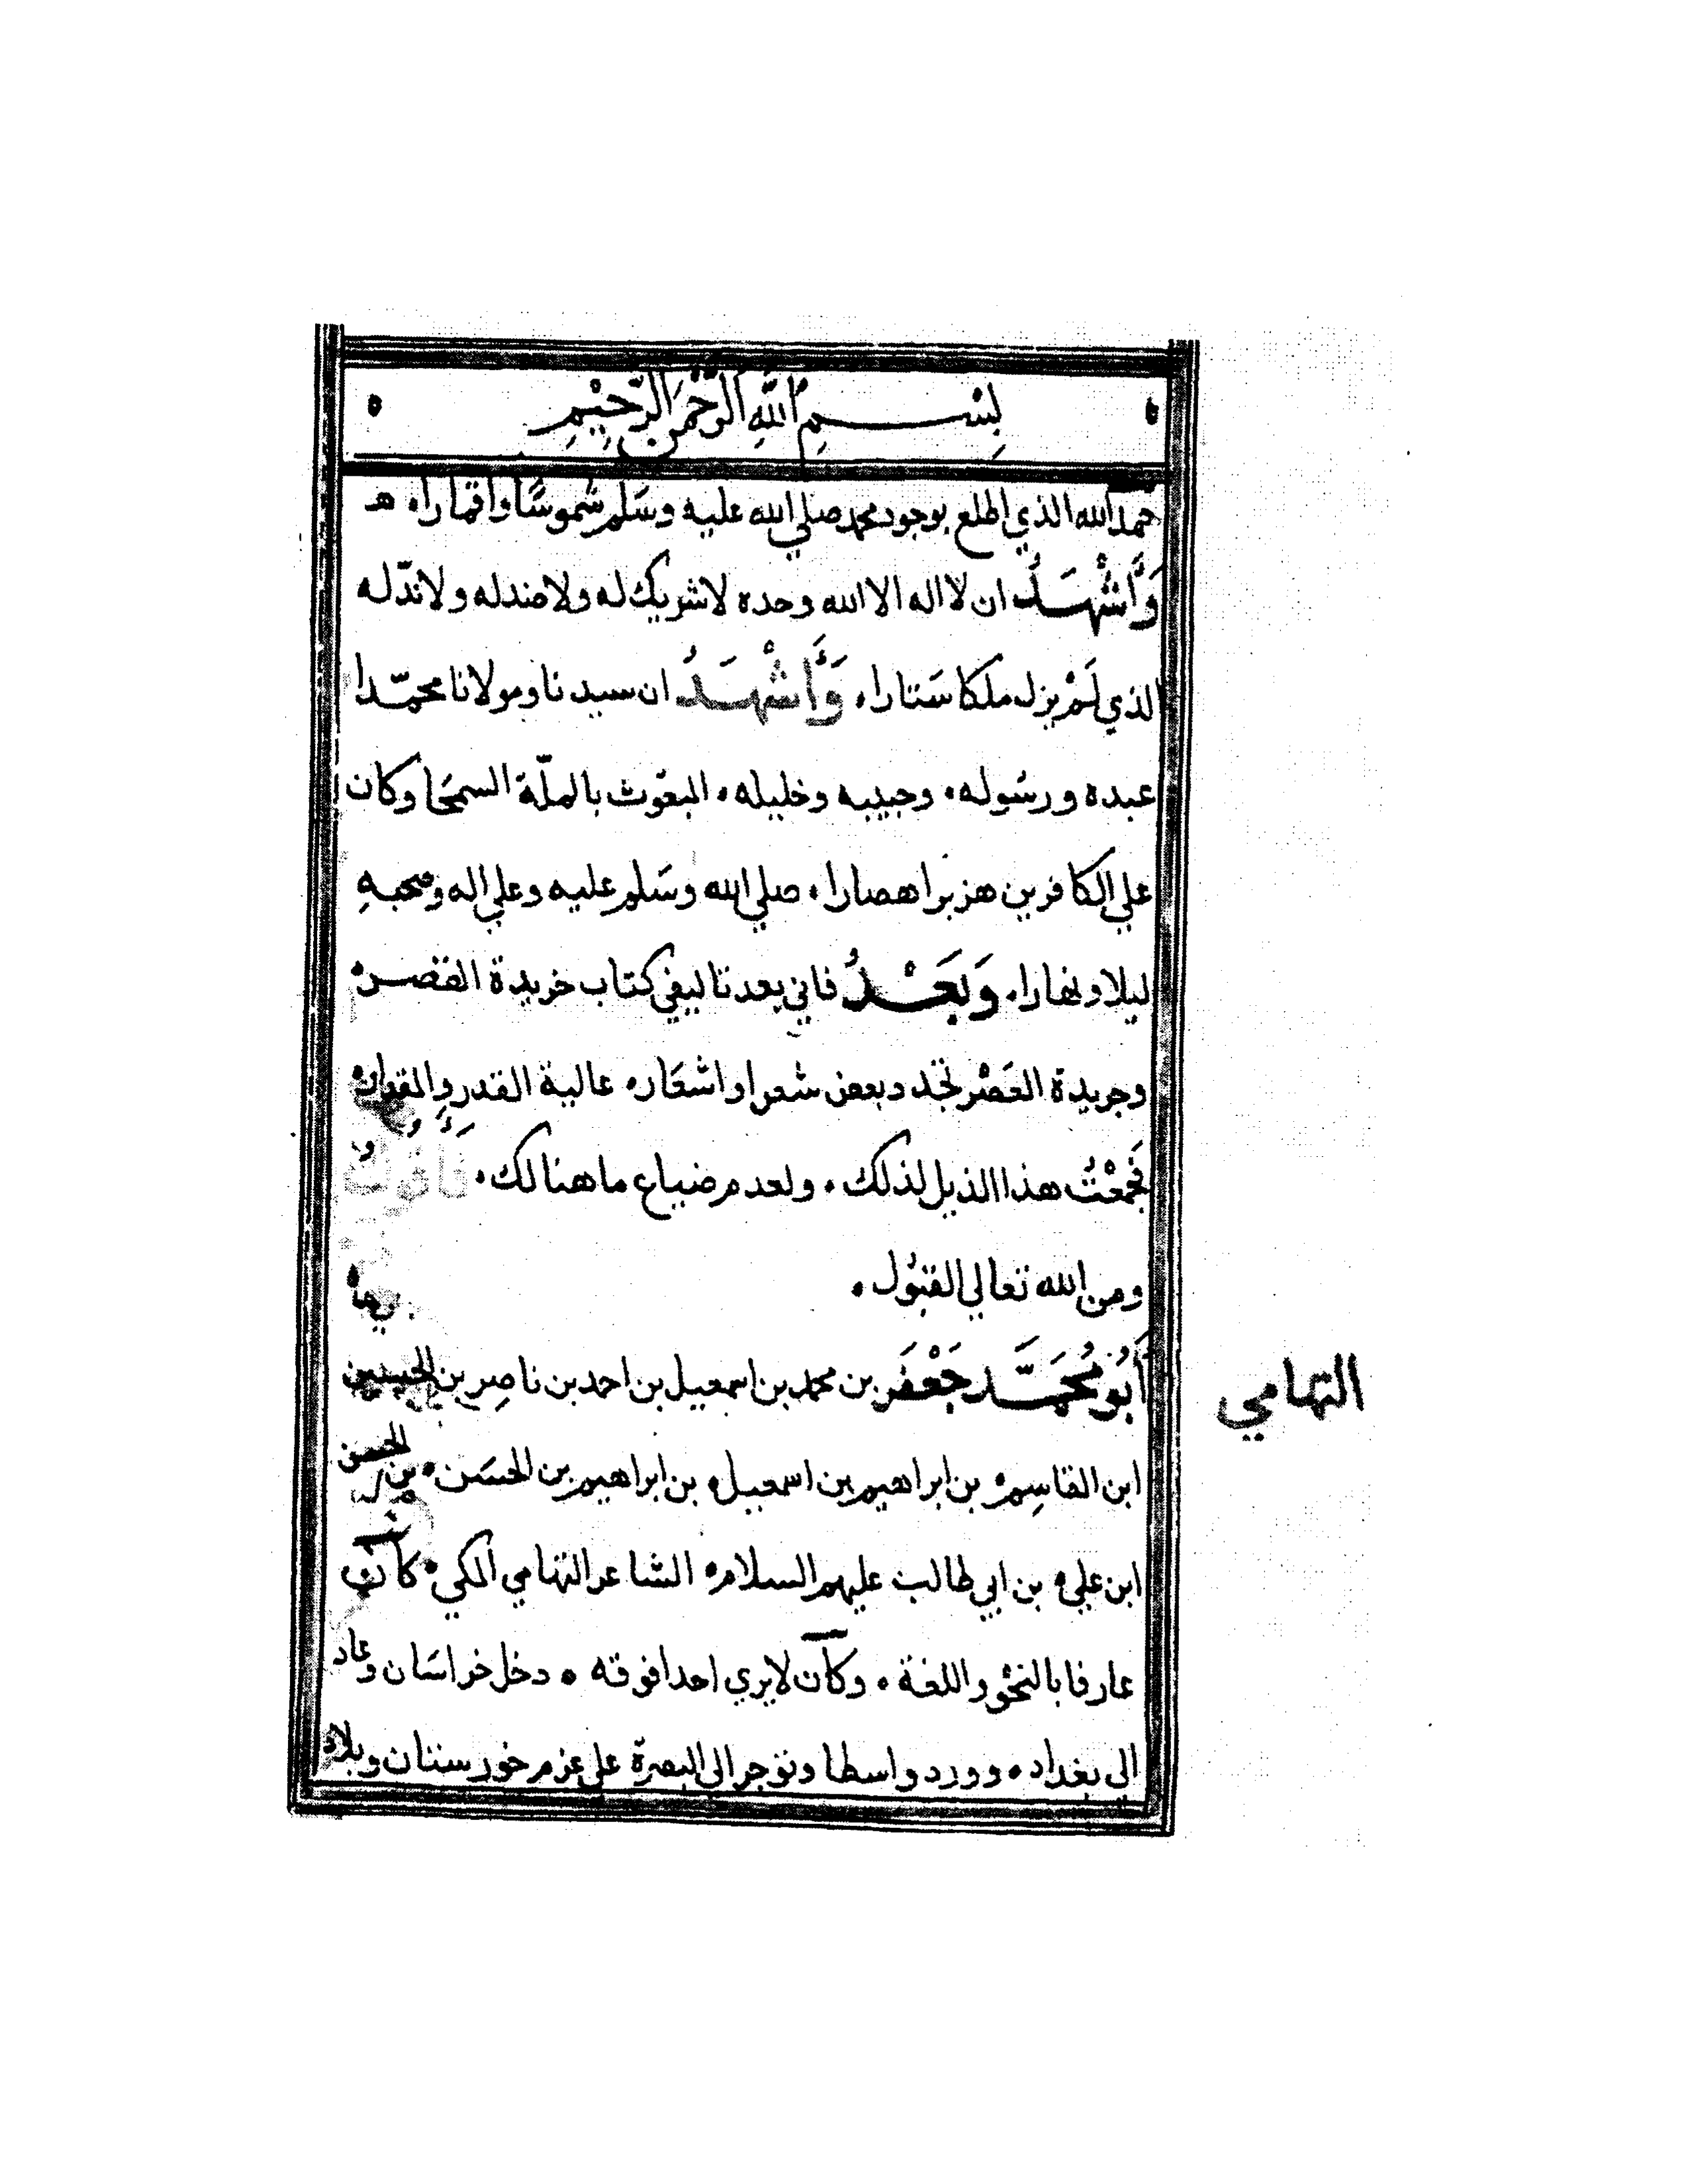 بِسْمِ اللَّهِ الرَّحْمَنِ الرَّحِيْمِ
حمد الله الذي اطلع بوجود محمد صلي الله عليه وسَلم شموسًا واقمارا، هـ
وَأَشْهَدُ ان لا اله الا الله وحده لا شريك له ولا ضد له ولا ندّ له
الذي لَمْ يزل ملكا سَتارا، وَأَشْهَدُ ان سيدنا ومولانا محمّدا
عبده ورسُوله، وحبيبه وخليله، المبعُوث بالملّة السمحَا وكان
علي الكافرين هزبرا هصارا، صلي الله وسَلم عليه وعلي اله وصحبهِ
ليلا ونهارا، وَبَعْدُ فاني بعد تاليفي كتاب خريدة القصر،
وجريدة العَصْر تجَدد بعض شعرا واشعَار، عالية القدر والمقدار،
فجمعْتُ هذا الذيل لذلك، ولعدم ضياع ما هنالك، فَأَقُولُ
ومن الله تعالي القبُول،
أَبُو مُحَمَّد جَعْفَر بن محمد بن اسمعيل بن احمد بن ناصِر بن الحسين
التهامي
ابن القاسِم، بن ابراهيم بن اسمعيل، بن ابراهيم بن الحسَن، بن الحسن
ابن علي، بن ابي طالب عليهم السلام، الشاعر التهامي المكي، كان
عارفا بالنحْو واللغة، وكان لا يري احدا فوقه، دخل خراسَان وعاد
الي بغداد، وورد واسطا وتوجر الي البصرة علي عزم خورستان وبلاد